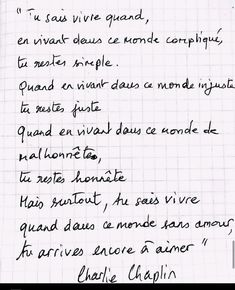 "Tu sais vivre quand,
en vivant dans ce monde compliqué,
tu restes simple.
Quand en vivant dans ce monde injuste
tu restes juste
Quand en vivant dans ce monde de
malhonnêtes,
tu restes honnête
Mais surtout, tu sais vivre
quand dans ce monde sans amour,
tu arrives encore à aimer"
Charlie Chaplin